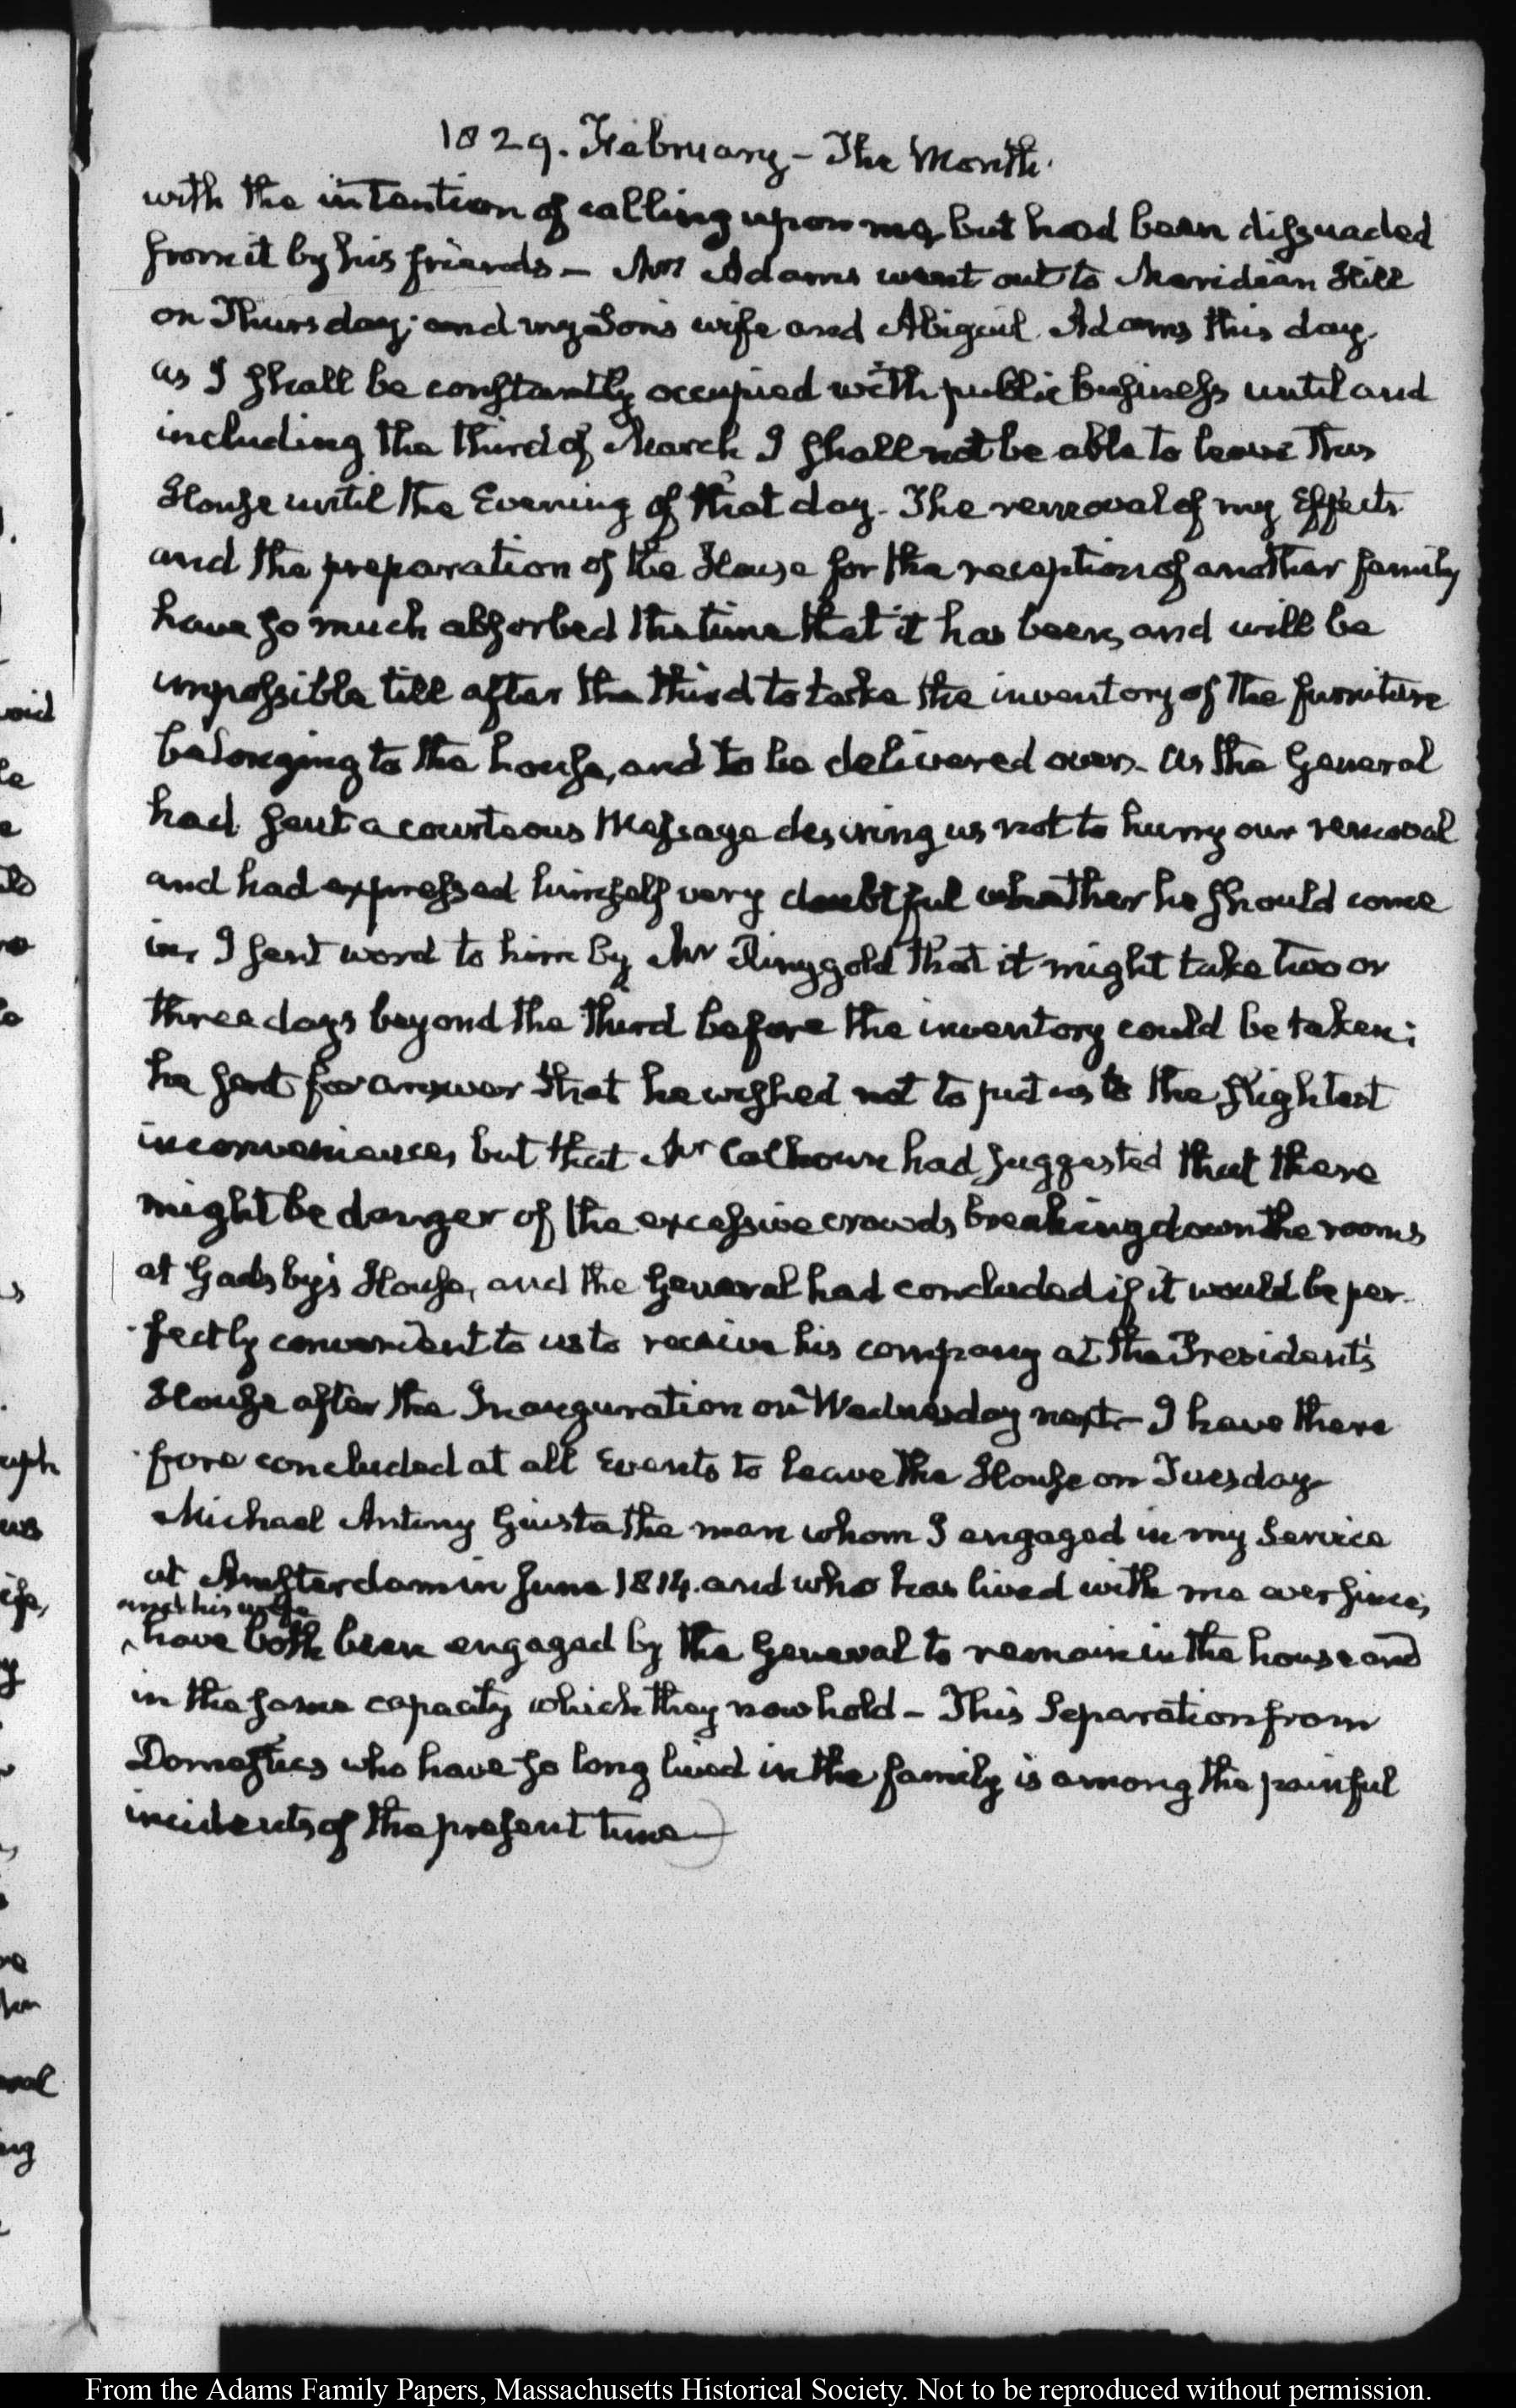 1829. February – The Month.
with the intention of calling upon me, but had been dissuaded
from it by his friends – Mrs Adams went out to Meridian Hill
on Thursday; and my Son's wife and Abigail Adams this day.
as I shall be constantly occupied with public business until and
including the third of March I shall not be able to leave this
House until the Evening of that day. The removal of my Effects
and the preparation of the House for the reception of another family
have so much absorbed the time that it has been, and will be
impossible till after the third to take the inventory of the furniture
belonging to the house, and to be delivered over. As the General
had sent a courteous Message desiring us not to hurry our removal
and had expressed himself very doubtful whether he should come
in, I sent word to him by Mr Ringgold that it might take two or
three days beyond the third before the inventory could be taken:
he sent for answer that he wished not to put us to the slightest
inconvenience, but that Mr Calhoun had suggested that there
might be danger of the excessive crowds breaking down the rooms
at Gadsby's House, and the General had concluded if it would be per-
-fectly convenient to us to receive his company at the President's
House after the Inauguration on Wednesday next – I have there
-fore concluded at all Events to leave the House on Tuesday
Michael Antony Giusta the man whom I engaged in my Service
at Amsterdam in June 1814. and who has lived with me ever since,
and his wife
have both been engaged by the General to remain in the house and
in the same capacity which they now hold – This Separation from
Domestics who have so long lived in the family is among the painful
incidents of the present time –
oid
le
e
uph
us
ife,
y
ral
ng
From the Adams Family Papers, Massachusetts Historical Society. Not to be reproduced without permission.